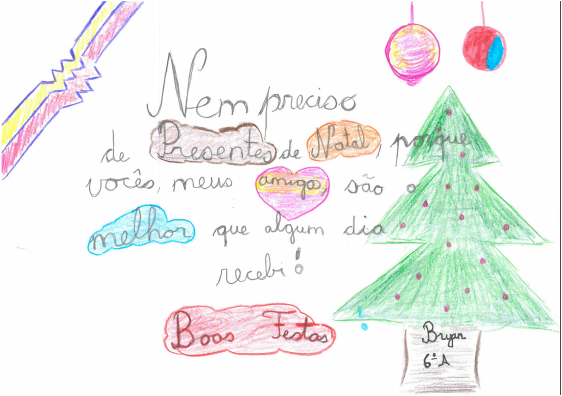 Nem preciso
de Presentes de Natal, porque
vocês, meus amigos, são o
melhor que algum dia
recebi!
Boas Festas
Bryan
6º A